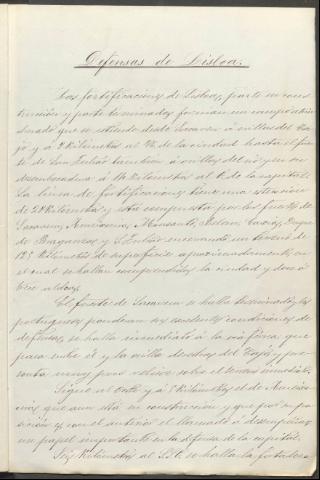 Defensas de Lisboa.
Las fortificaciones de Lisboa, parte en cons-
trucción y parte terminadas forman un campo atrin-
cherado que se estiende desde Sacavem á orillas del Ta-
jo y á 9 Kilómetros al N. de la ciudad hasta el fuer-
te de San Julián tambien á orillas del rio y en su
desembocadura á 14 Kilómetros al O. de la capital.
La linea de fortificaciones tiene una estension
de 20 Kilómetros y está compuesta por los fuertes de
Sacavem, Ameixoeira, Monsanto, Belem, Caxias, Duque
de Braganza y S. Julian encerrando un terreno de
125 Kilómetros de superficie aproximadamente, en
el cual se hallan comprendidos la ciudad y doce ó
trece aldeas.
El fuerte de Sacavem se halla terminado; los
portugueses ponderan sus excelentes condiciones de
defensa; se halla inmediato á la via férrea que
pasa entre él y la orilla derecha del Tajo y pre-
senta muy poco relieve sobre el terreno inmediato.
Sigue al Oeste y á Kilómetros el de Ameixo-
eira que aun está en construccion y que por su po-
sición es con el anterior el llamado á desempeñar
un papel importante en la defensa de la capital.
Seis Kilómetros al S.O. se halla la fortaleza